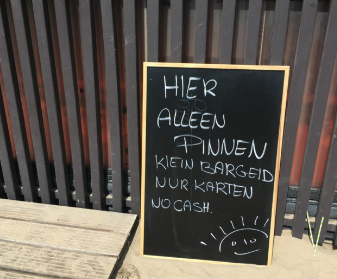 HIER
ALLEEN
PINNEN
KLEIN BARGEID
NUR KARTEN
NO CASH.